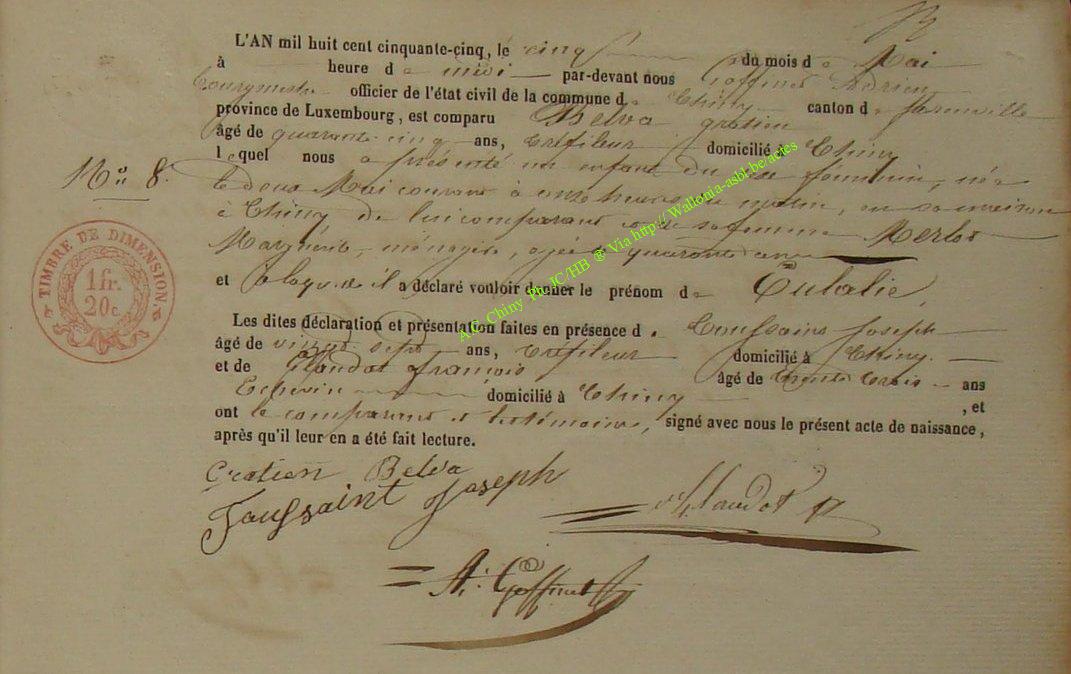 L'AN mil huit cent cinquante-cinq, le cinq du mois de Mai
à heure de midi par-devant nous Goffinet Adrien
Bourgmestre officier de l'état civil de la commune de Chiny canton de
province de Luxembourg, est comparu Belva gratien
âgé de quarante-cinq ans, tréfileur domicilié à Chiny
lequel nous a présenté un enfant du sexe féminin, née
N° 8.
le deux Mai courant à onze heures du matin, en sa maison
à Chiny de lui comparant et de sa femme Merlot
Marguerite, ménagère, agée de quarante ans
et a laquelle il a déclaré vouloir donner le prénom de Eulalie,
TIMBRE DE DIMENSION.
1 fr.
20 c.
Les dites déclaration et présentation faites en présence de Toussaint Joseph
âgé de vingt sept ans, tréfileur domicilié à Chiny.
et de Claudot françois âgé de trente trois ans
Echevin domicilié à Chiny , et
ont le comparant et les témoins, signé avec nous le présent acte de naissance,
après qu'il leur en a été fait lecture.
Gratien Belva
Toussaint Joseph
Claudot
A. Goffinet
A.E. Chiny Ph JC/HB @ Via http:// Wallonia-asbl.be/actes